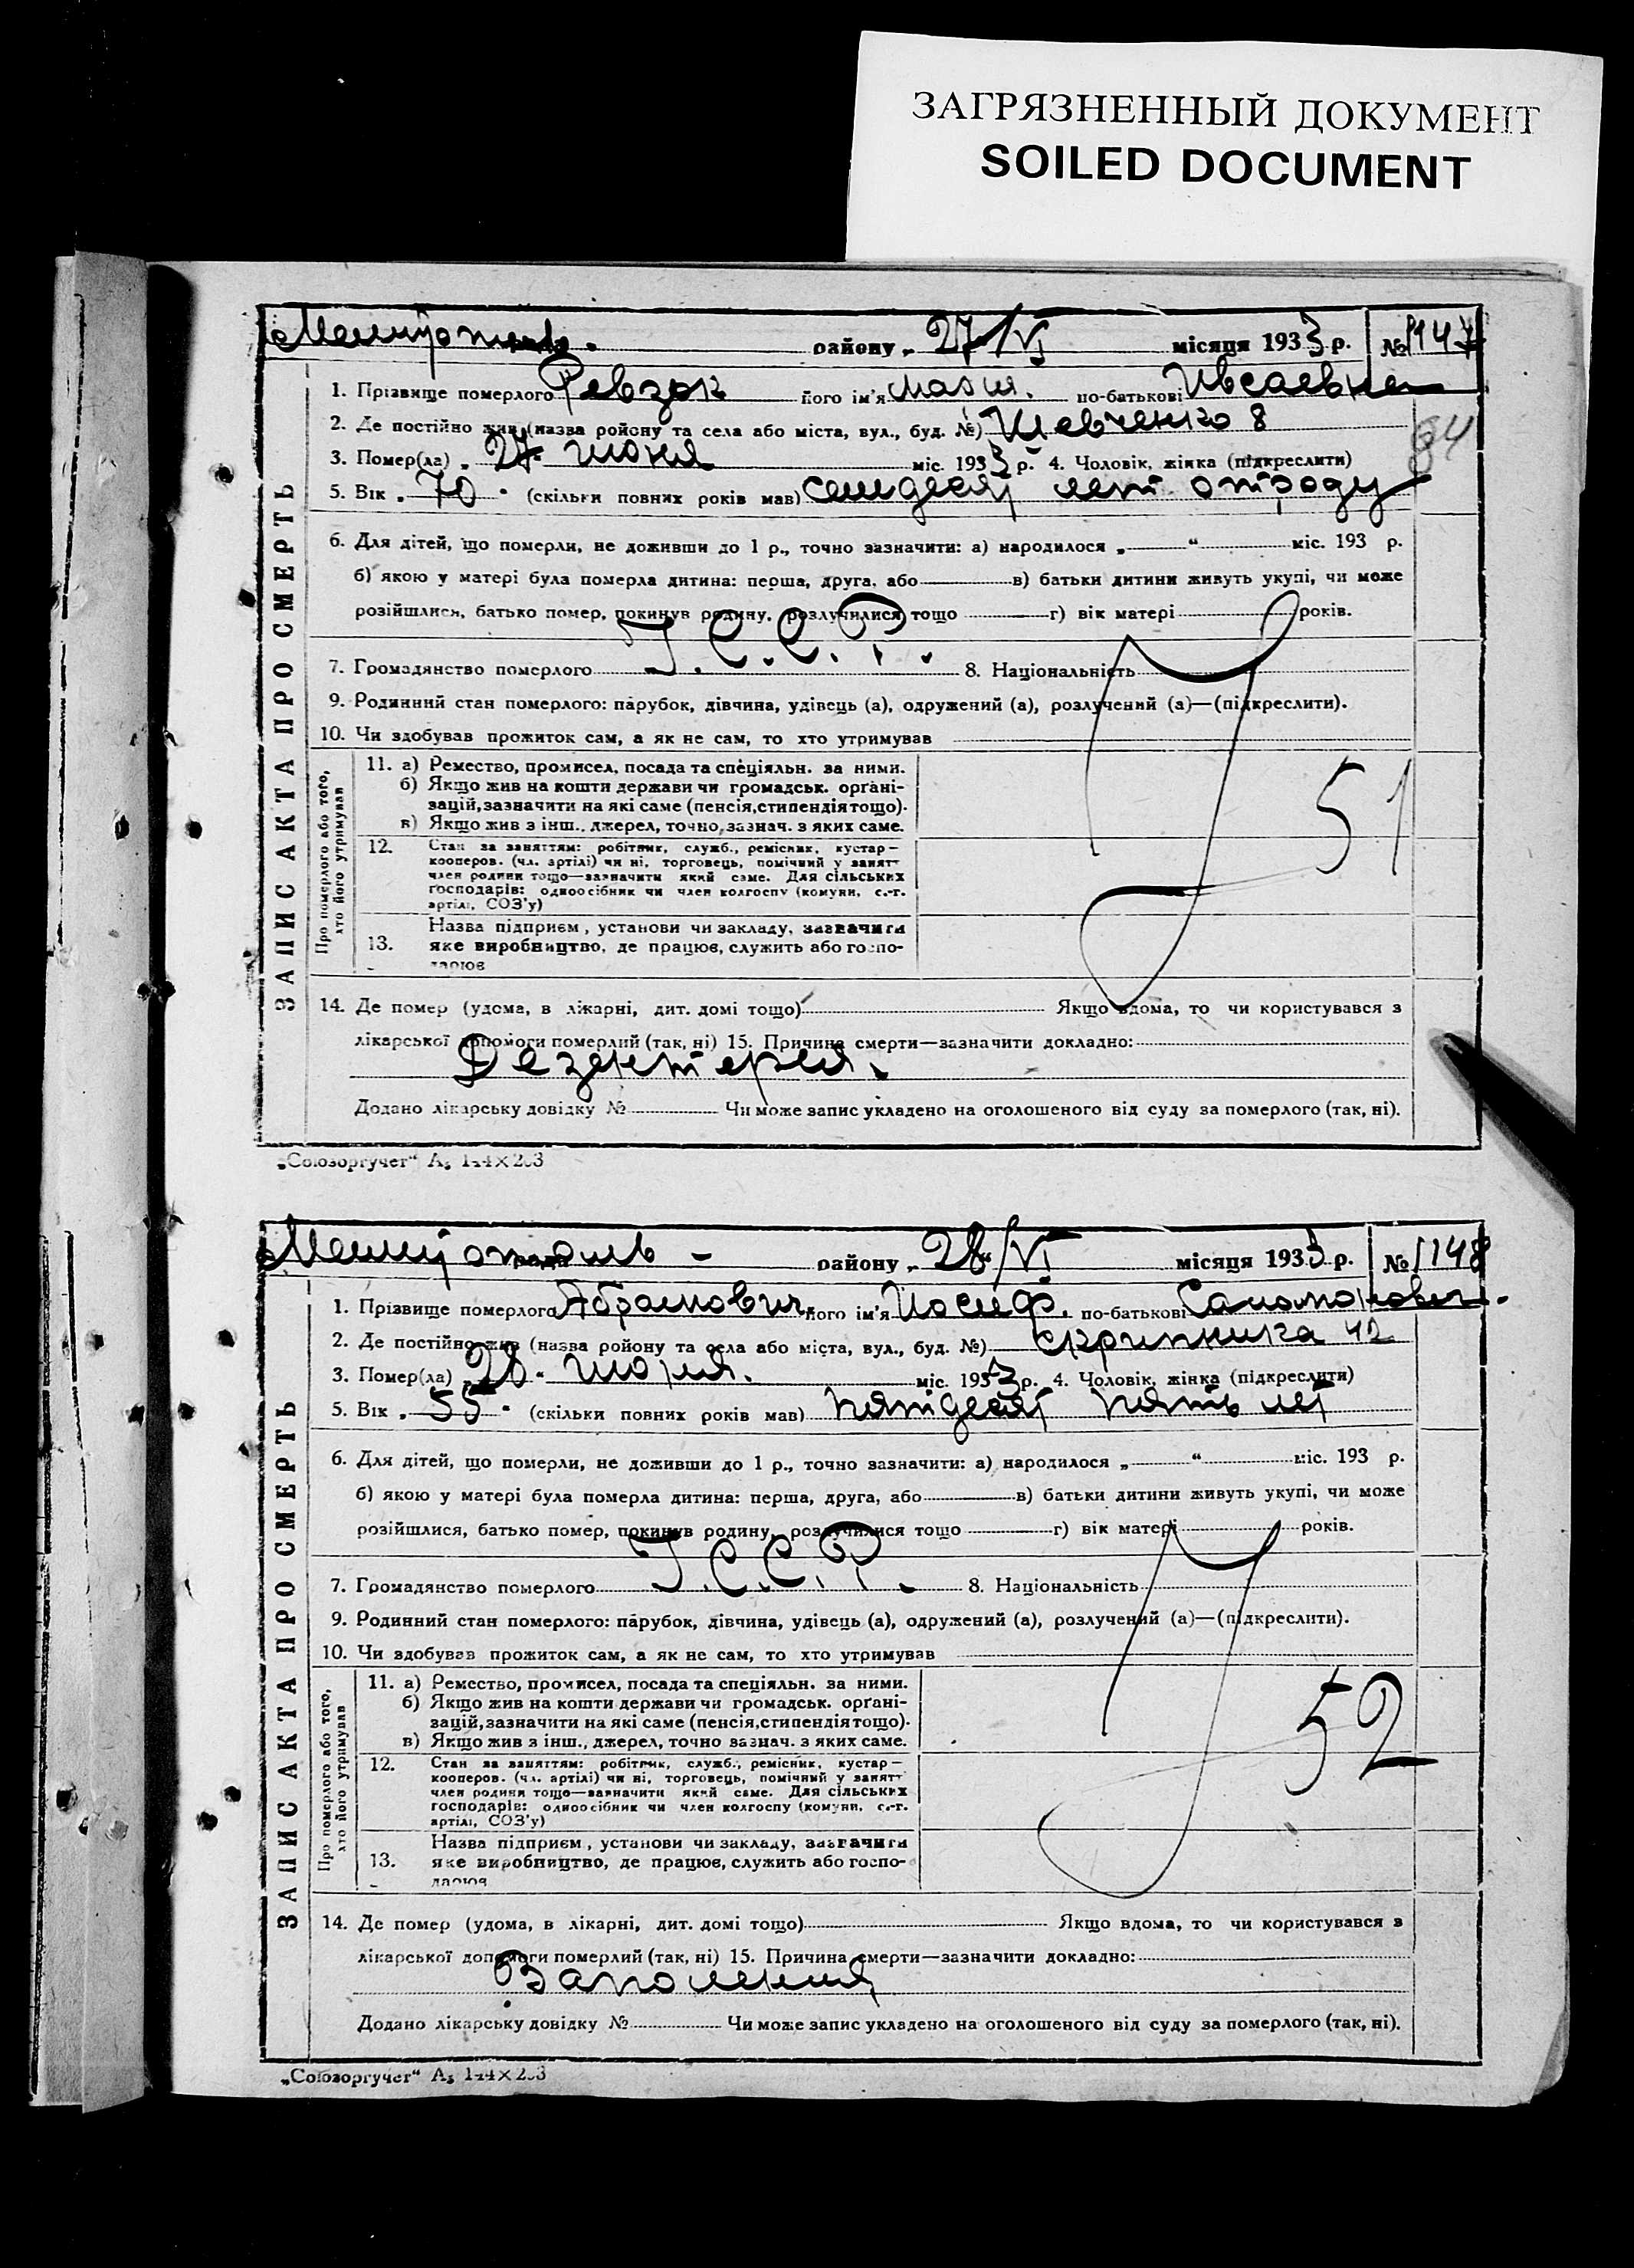 ЗАГРЯЗНЕННЫЙ ДОКУМЕНТ
SOILED DOCUMENT
району „ 27/VI місяця 1933 р. № 1147
1. Прізвище померлого Ревзок його ім'я Мария. по-батькові Ивсаевна
2. Де постійно жив (назва району та села або міста, вул., буд. №) Шевченко 8
84
3. Помер(ла) „ 27 июня міс. 1933 р. 4. Чоловік, жінка (підкреслити)
5. Вік „ 70 " (скільки повних років мав) семдесят лет отроду
ЗАПИС АКТА ПРО СМЕРТЬ
6. Для дітей, що померли, не доживши до 1 р., точно зазначити: а) народилося „ “ міс. 193 р.
б) якою у матері була померла дитина: перша, друга, або в) батьки дитини живуть укупі, чи може
розійшлися, батько помер, покинув родину, розлучилися тощо г) вік матері років.
7. Громадянство померлого У.С.С.Р. 8. Національність
9. Родинний стан померлого: парубок, дівчина, удівець (а), одружений (а), розлучений (а)—(підкреслити).
10. Чи здобував прожиток сам, а як не сам, то хто утримував
Про померлого або того, хто його утримував
11. а) Ремество, промисел, посада та спеціяльн. за ними.
б) Якщо жив на кошти держави чи громадськ. орґані-
зацій, зазначити на які саме (пенсія, стипендія тощо).
в) Якщо жив з інш., джерел, точно зазнач. з яких саме.
51
12. Стан за заняттям: робітник, служб., ремісник, кустар—
кооперов. (чл. артілі) чи ні, торговець, помічний у занятт
член родини тощо—зазначити який саме. Для сільських
господарів: одноосібник чи член колгоспу (комуни, с.-г.
артілі, СОЗ'у)
Назва підприєм., установи чи закладу, зазначити
13. яке виробництво, де працює, служить або госпо-
дарює
14. Де помер (удома, в лікарні, дит. домі тощо) Якщо вдома, то чи користувався з
лікарської допомоги померлий (так, ні) 15. Причина смерти—зазначити докладно:
Дезентерия.
Додано лікарську довідку № Чи може запис укладено на оголошеного від суду за померлого (так, ні).
„Союзоргучет“ А₅ 144×203
району „ 28/VI місяця 1933 р. № 1148
1. Прізвище померлого Абрамович його ім'я Иосиф. по-батькові Саломонович.
2. Де постійно жив (назва району та села або міста, вул., буд. №) Скрипника 42
3. Помер(ла) „ 28 " июня. міс. 1933 р. 4. Чоловік, жінка (підкреслити)
5. Вік „ 55 " (скільки повних років мав) пятдесят пять лет
ЗАПИС АКТА ПРО СМЕРТЬ
6. Для дітей, що померли, не доживши до 1 р., точно зазначити: а) народилося „ “ міс. 193 р.
б) якою у матері була померла дитина: перша, друга, або в) батьки дитини живуть укупі, чи може
розійшлися, батько помер, покинув родину, розлучилися тощо г) вік матері років.
7. Громадянство померлого У.С.С.Р. 8. Національність
9. Родинний стан померлого: парубок, дівчина, удівець (а), одружений (а), розлучений (а)—(підкреслити).
10. Чи здобував прожиток сам, а як не сам, то хто утримував
Про померлого або того, хто його утримував
11. а) Ремество, промисел, посада та спеціяльн. за ними.
б) Якщо жив на кошти держави чи громадськ. орґані-
зацій, зазначити на які саме (пенсія, стипендія тощо).
в) Якщо жив з інш., джерел, точно зазнач. з яких саме.
52
12. Стан за заняттям: робітник, служб., ремісник, кустар—
кооперов. (чл. артілі) чи ні, торговець, помічний у занятт
член родини тощо—зазначити який саме. Для сільських
господарів: одноосібник чи член колгоспу (комуни, с.-г.
артілі, СОЗ'у)
Назва підприєм., установи чи закладу, зазначити
13. яке виробництво, де працює, служить або госпо-
дарює
14. Де помер (удома, в лікарні, дит. домі тощо) Якщо вдома, то чи користувався з
лікарської допомоги померлий (так, ні) 15. Причина смерти—зазначити докладно:
Заполения
Додано лікарську довідку № Чи може запис укладено на оголошеного від суду за померлого (так, ні).
„Союзоргучет“ А₅ 144×203